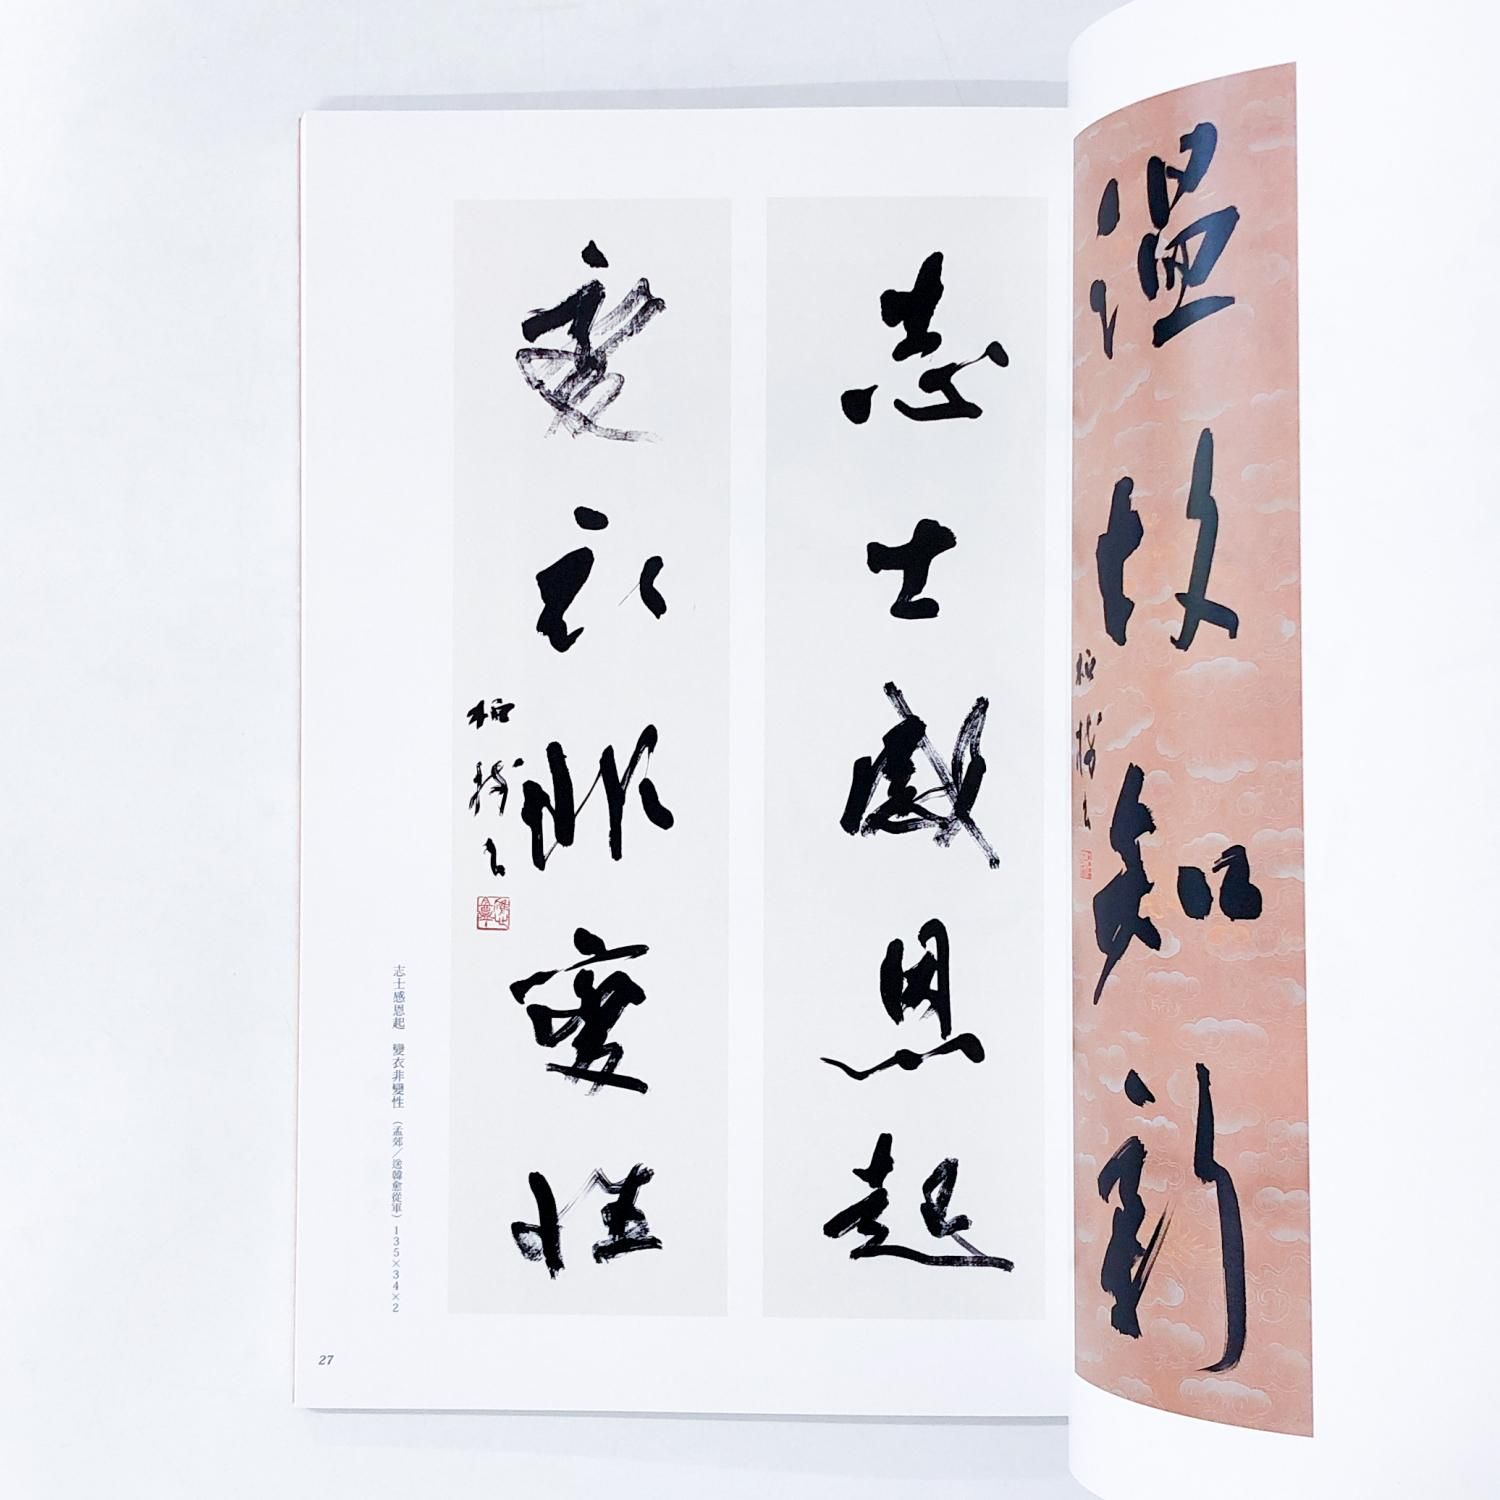 溫故知新
柏樹書
志士感恩起
變衣非變性
柏樹書
志士感恩起　變衣非變性（孟郊／送韓愈從軍）135×34×2
27